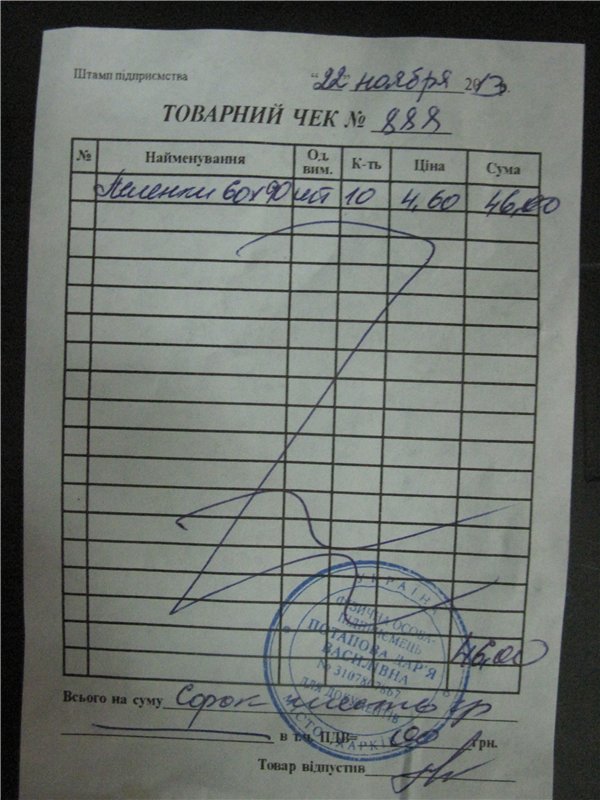 Штамп підприємства "22" ноября 2013
ТОВАРНИЙ ЧЕК № 888
№ Найменування Од. вим. К-ть Ціна Сума
Пеленки 60х90 шт 10 4,60 46,00
УКРАЇН
ФІЗИЧНА ОСОБА-
ПІДПРИЄМЕЦЬ
ПОТАПОВА ДАР'Я
ВАСИЛІВНА
№ 3107807867
ДЛЯ ДОКУМЕНТІВ
МІСТО ХАРКІВ
46,00
Всього на суму Сорок шесть гр
в т.ч. ПДВ= 00 грн.
Товар відпустив